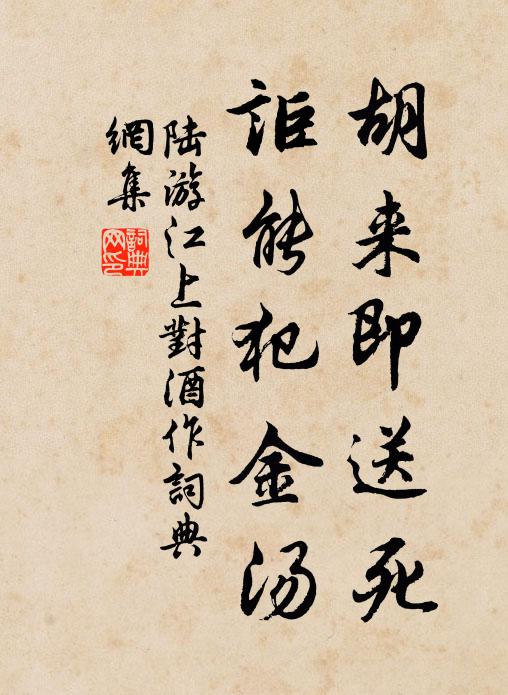 胡来即送死
讵能犯金汤
陆游江上對酒作詞典
網集
詞典
网印